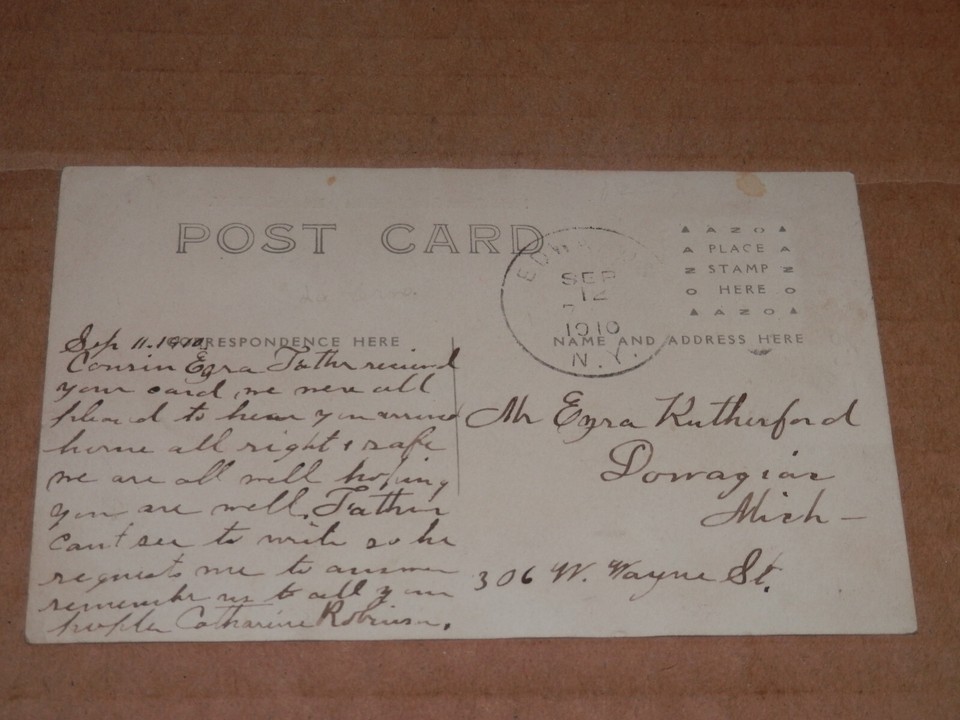 POST CARD
SEP
12
1910
N.Y.
AZO
PLACE
STAMP
HERE
AZO
CORRESPONDENCE HERE
NAME AND ADDRESS HERE
Sep 11. 1910
Cousin Ezra Father received
your card we were all
pleased to hear you arrived
home all right & safe
we are all well hoping
you are well. Father
can't see to write so he
requests me to answer
remember us to all your
people Catharine Robinson.
Mr Ezra Rutherford
Dowagiac
Mich -
306 W. Wayne St.